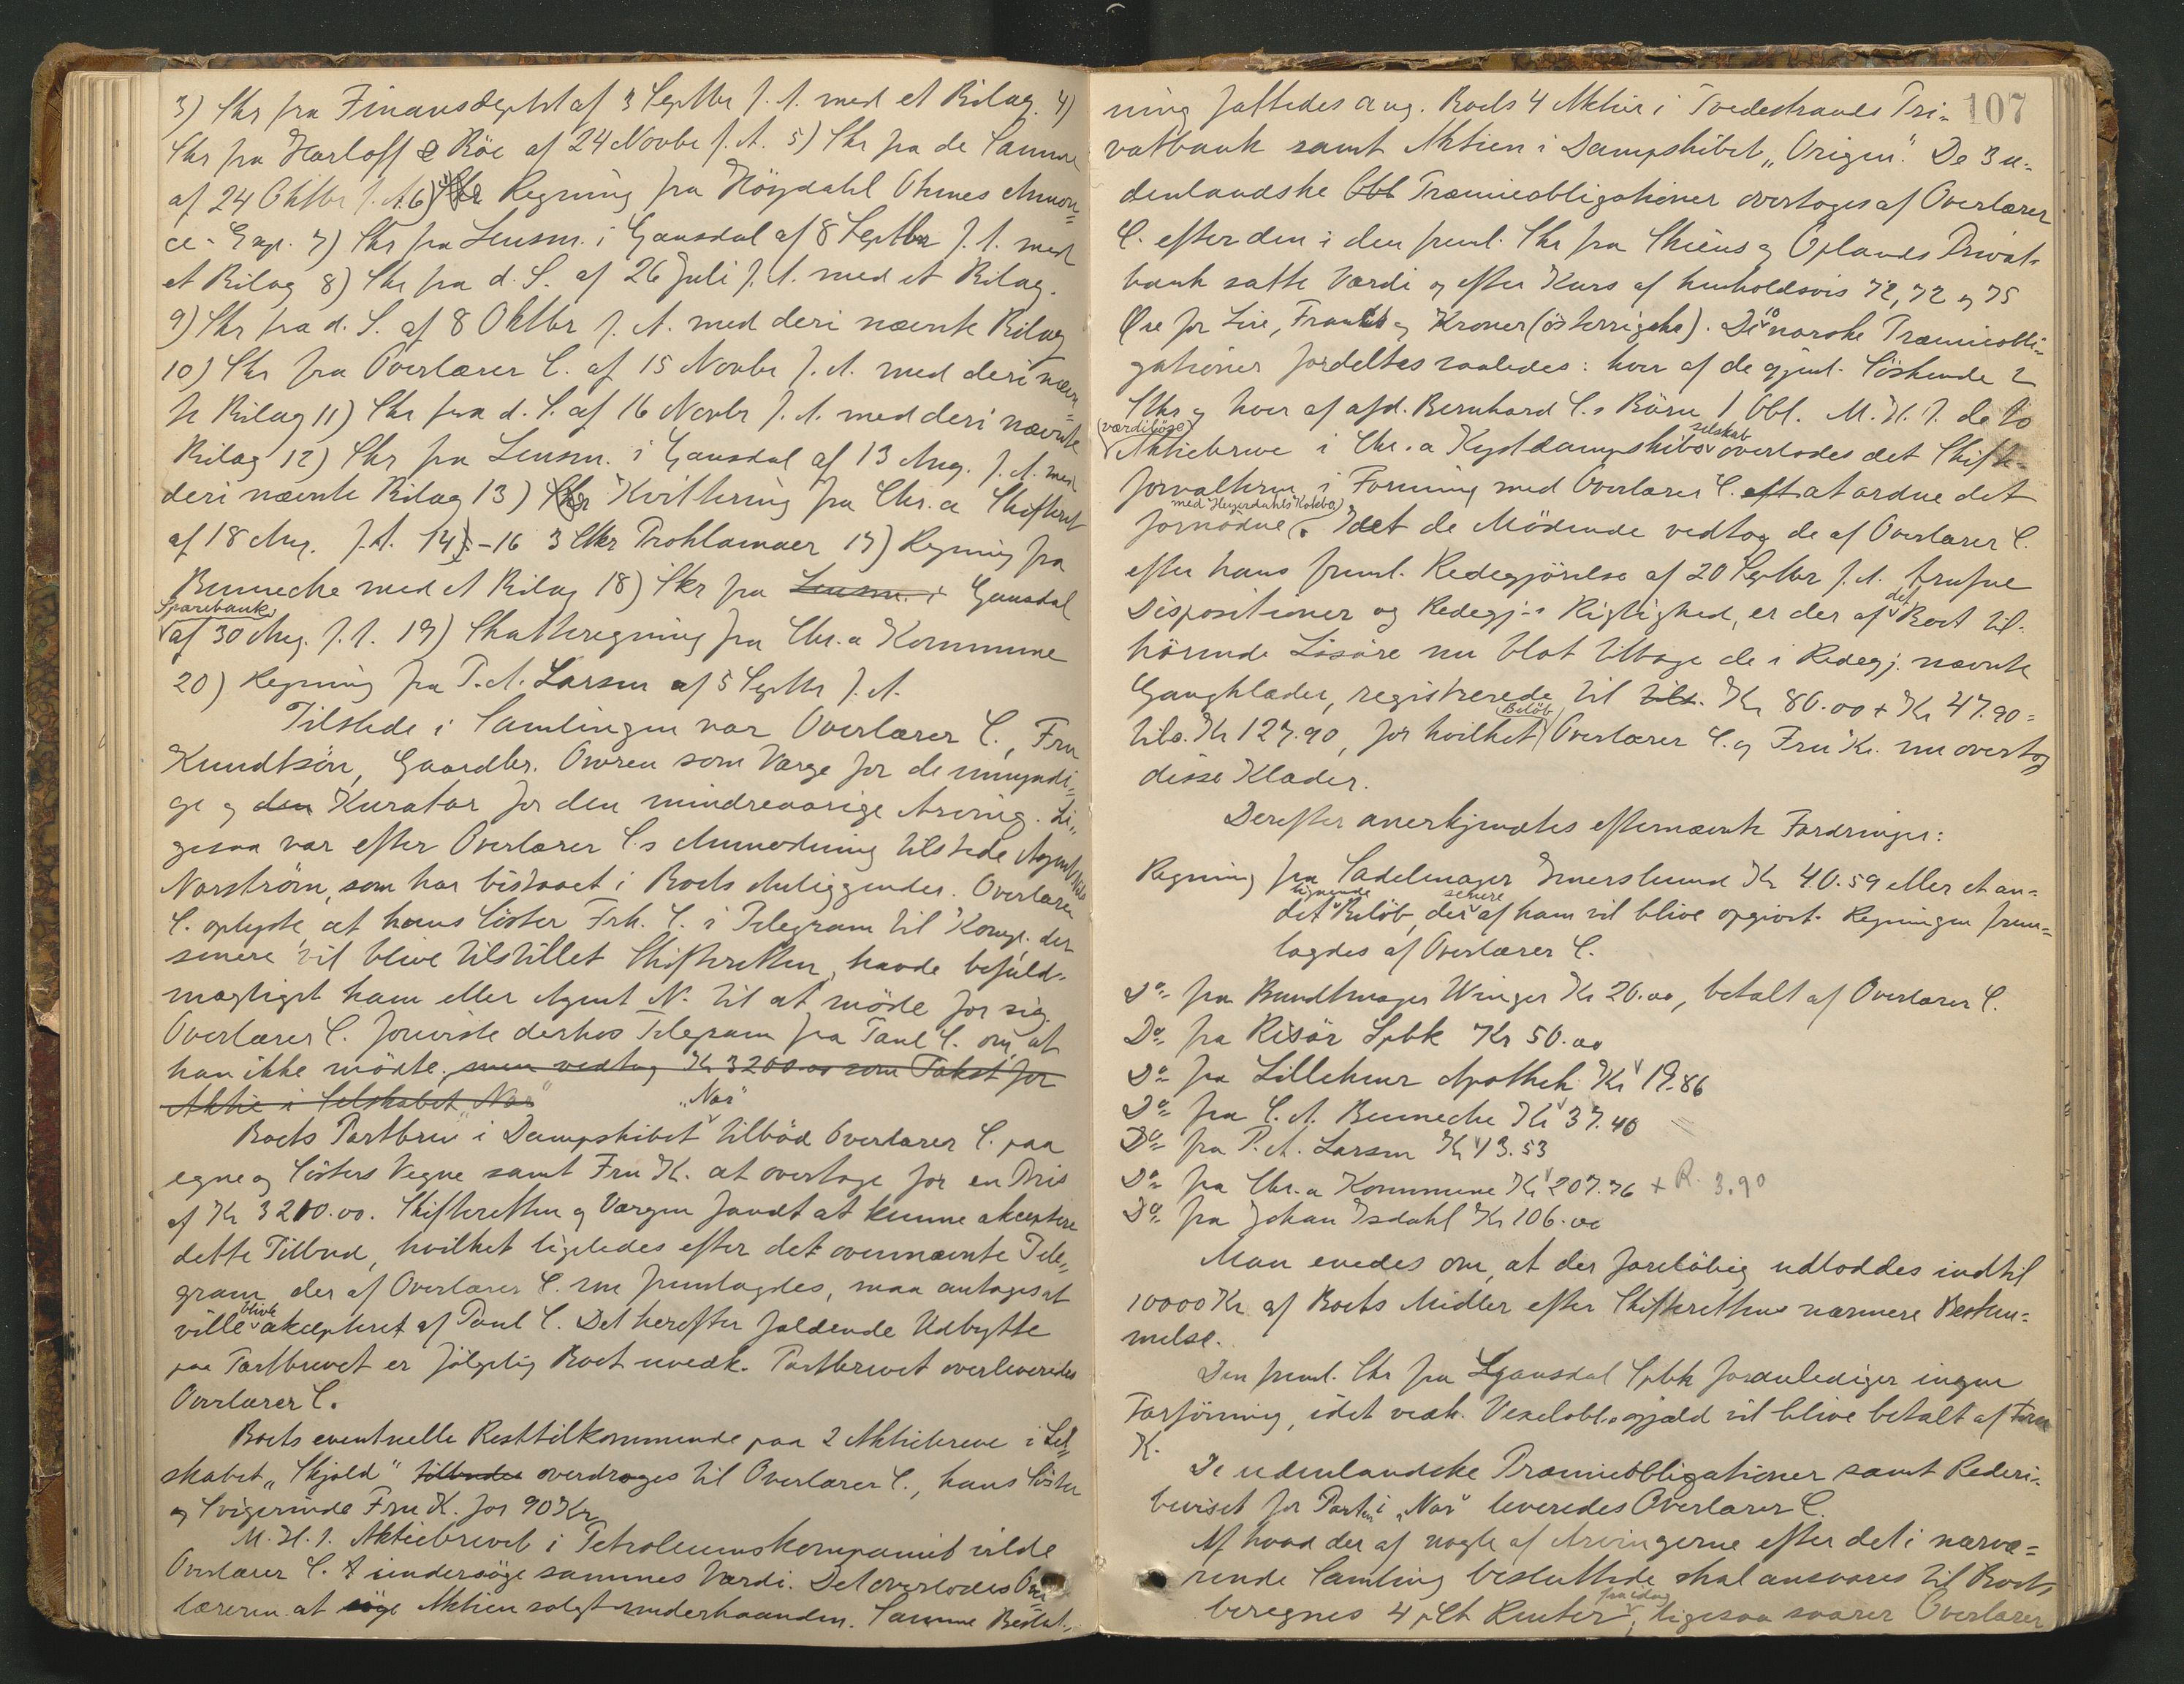 3) Skr fra Finansdeptet af 3 Septbr f. A. med et Bilag. 4)
Skr fra Harloff & Böe af 24 Novbr f. A. 5) Skr fra de Samme
af 24 Oktbr f. A. 6) Regning fra Höydahl Ohmes Annon=
ce-Exp. 7) Skr fra Lensm. i Gausdal af 8 Septbr f. A. med
et Bilag 8) Skr fra d. S. af 26 Juli f. A. med et Bilag.
9) Skr fra d. S. af 8 Oktbr f. A. med deri nævnte Bilag
10) Skr fra Overlærer C. af 15 Novbr f. A. med deri nævn=
te Bilag 11) Skr fra d. S. af 16 Novbr f. A. med deri nævnte
Bilag 12) Skr fra Lensm. i Gausdal af 13 Aug. f. A. med
deri nævnte Bilag 13) Kvittering fra Chr.a Skifteret
af 18 Aug. f. A. 14)-16 3 Stkr Proklamaer 17) Regning fra
Bennecke med et Bilag 18) Skr fra Lensm. i Gausdal
Sparebank
af 30 Aug. f. A. 19) Skatteregning fra Chr.a Kommune
20) Regning fra P. A. Larsen af 5 Septbr f. A.
Tilstede i Samlingen var Overlærer C., Fru
Knudtsön, Gaardbr. Owren som Værge for de umyndi=
ge og den Kurator for den mindreaarige Arving. Li=
gesaa var efter Overlærer C.s Anmodning tilstede Agent
Norström, som har bistaaet i Boets Anliggender. Overlærer
C. oplyste, at hans Söster Frk. C. i Telegram til Komp. der
senere vil blive tilstillet Skifteretten, havde befuld=
mægtiget ham eller Agent N. til at möde for sig.
Overlærer C. foreviste derhos Telegram fra Paul C. om, at
han ikke mödte, men vedtog Kr 3200.00 som Takst for
Aktie i Selskabet "Nor"
"Nor"
Boets Partbrev i Dampskibet tilböd Overlærer C. paa
egne og Sösters Vegne samt Fru K. at overtage for en Pris
af Kr 3200.00. Skifteretten og Værgen fandt at kunne akceptere
dette Tilbud, hvilket ligeledes efter det ovennævnte Tele=
gram, der af Overlærer C. nu fremlagdes, maa antages at
blive
ville akcepteret af Paul C. Det herefter faldende Udbytte
paa Partbrevet er fölgelig Boet uvedk. Partbrevet overleveredes
Overlærer C.
Boets eventuelle Resttilkommende paa 2 Aktiebreve i Sel=
skabet "Skjold" tilbudes overdroges til Overlærer C., hans Söster
og Svigerinde Fru K. for 90 Kr
M. H. t. Aktiebrevet i Petroleumskompaniet vilde
Overlærer C. undersöge sammes Værdi. Det overlodes Over
læreren at söge Aktien solgt underhaanden. Samme Beslut=
107
ning fattedes ang. Boets 4 Aktier i Tvedestrands Pri=
vatbank samt Aktien i Dampskibet "Origen". De 3 u=
denlandske Obl Præmieobligationer overtoges af Overlærer
C. efter den i den freml. Skr fra Skiens og Oplands Privat=
bank satte Værdi og efter Kurs af henholdsvis 72, 72 og 75
Øre for Lire, Francs og Kroner (österrigske). De 10 norske Præmieobli=
gationer fordeltes saaledes: hver af de gjenl. Söskende 2
Stkr og hver af afd. Bernhard C.s Börn 1 Obl. M. H. t. de to
(værdilöse) selskab
Aktiebreve i Chr.a Kystdampskibs overlodes det Skifte=
forvalteren i Forening med Overlærer C. at ordne det
med Heyerdahls Konkbo
fornödne. Idet de Mödende vedtog de af Overlærer C.
efter hans freml. Redegjörelse af 20 Septbr f. A. trufne
det
Dispositioner og Redegj-s Rigtighed, er der af Boet til=
hörende Lösöre nu blot tilbage de i Redegj. nævnte
Gangklæder, registrerede til tils. Kr 80.00 + Kr 47.90 =
Belöb
tils. Kr 127.90, for hvilket Overlærer C. og Fru K. nu overtog
disse Klæder.
Derefter anerkjendtes efternævnte Fordringer:
Regning fra Sadelmager Imerslund Kr 40.59 eller et an=
lignende senere
det Belöb, der af ham vil blive opgivet. Regningen frem=
lagdes af Overlærer C.
Do fra Bundtmager Winger Kr 20.00, betalt af Overlærer C.
Do fra Risör Spbk Kr 50.00
Do fra Lilleham Apothek Kr 19.86
Do fra C. A. Bennecke Kr 37.40
Do fra P. A. Larsen Kr 13.53
Do fra Chr.a Kommune Kr 207.76 + R. 3.90
Do fra Johan Isdahl Kr 106.00
Man enedes om, at der forelöbig udloddes indtil
10000 Kr af Boets Midler efter Skifterettens nærmere Bestem=
melse.
Den freml. Skr fra Gausdal Spbk foranlediger ingen
Forföining, idet vedk. Vexelobl.gjæld vil blive betalt af Fru
K.
De udenlandske Præmieobligationer samt Rederi=
beviset for Parten i "Nor" leveredes Overlærer C.
Af hvad der af nogle af Arvingerne efter det i nærvæ=
rende Samling besluttede skal ansvares til Boet
fra idag
beregnes 4 pCt Renter; ligesaa svarer Overlærer